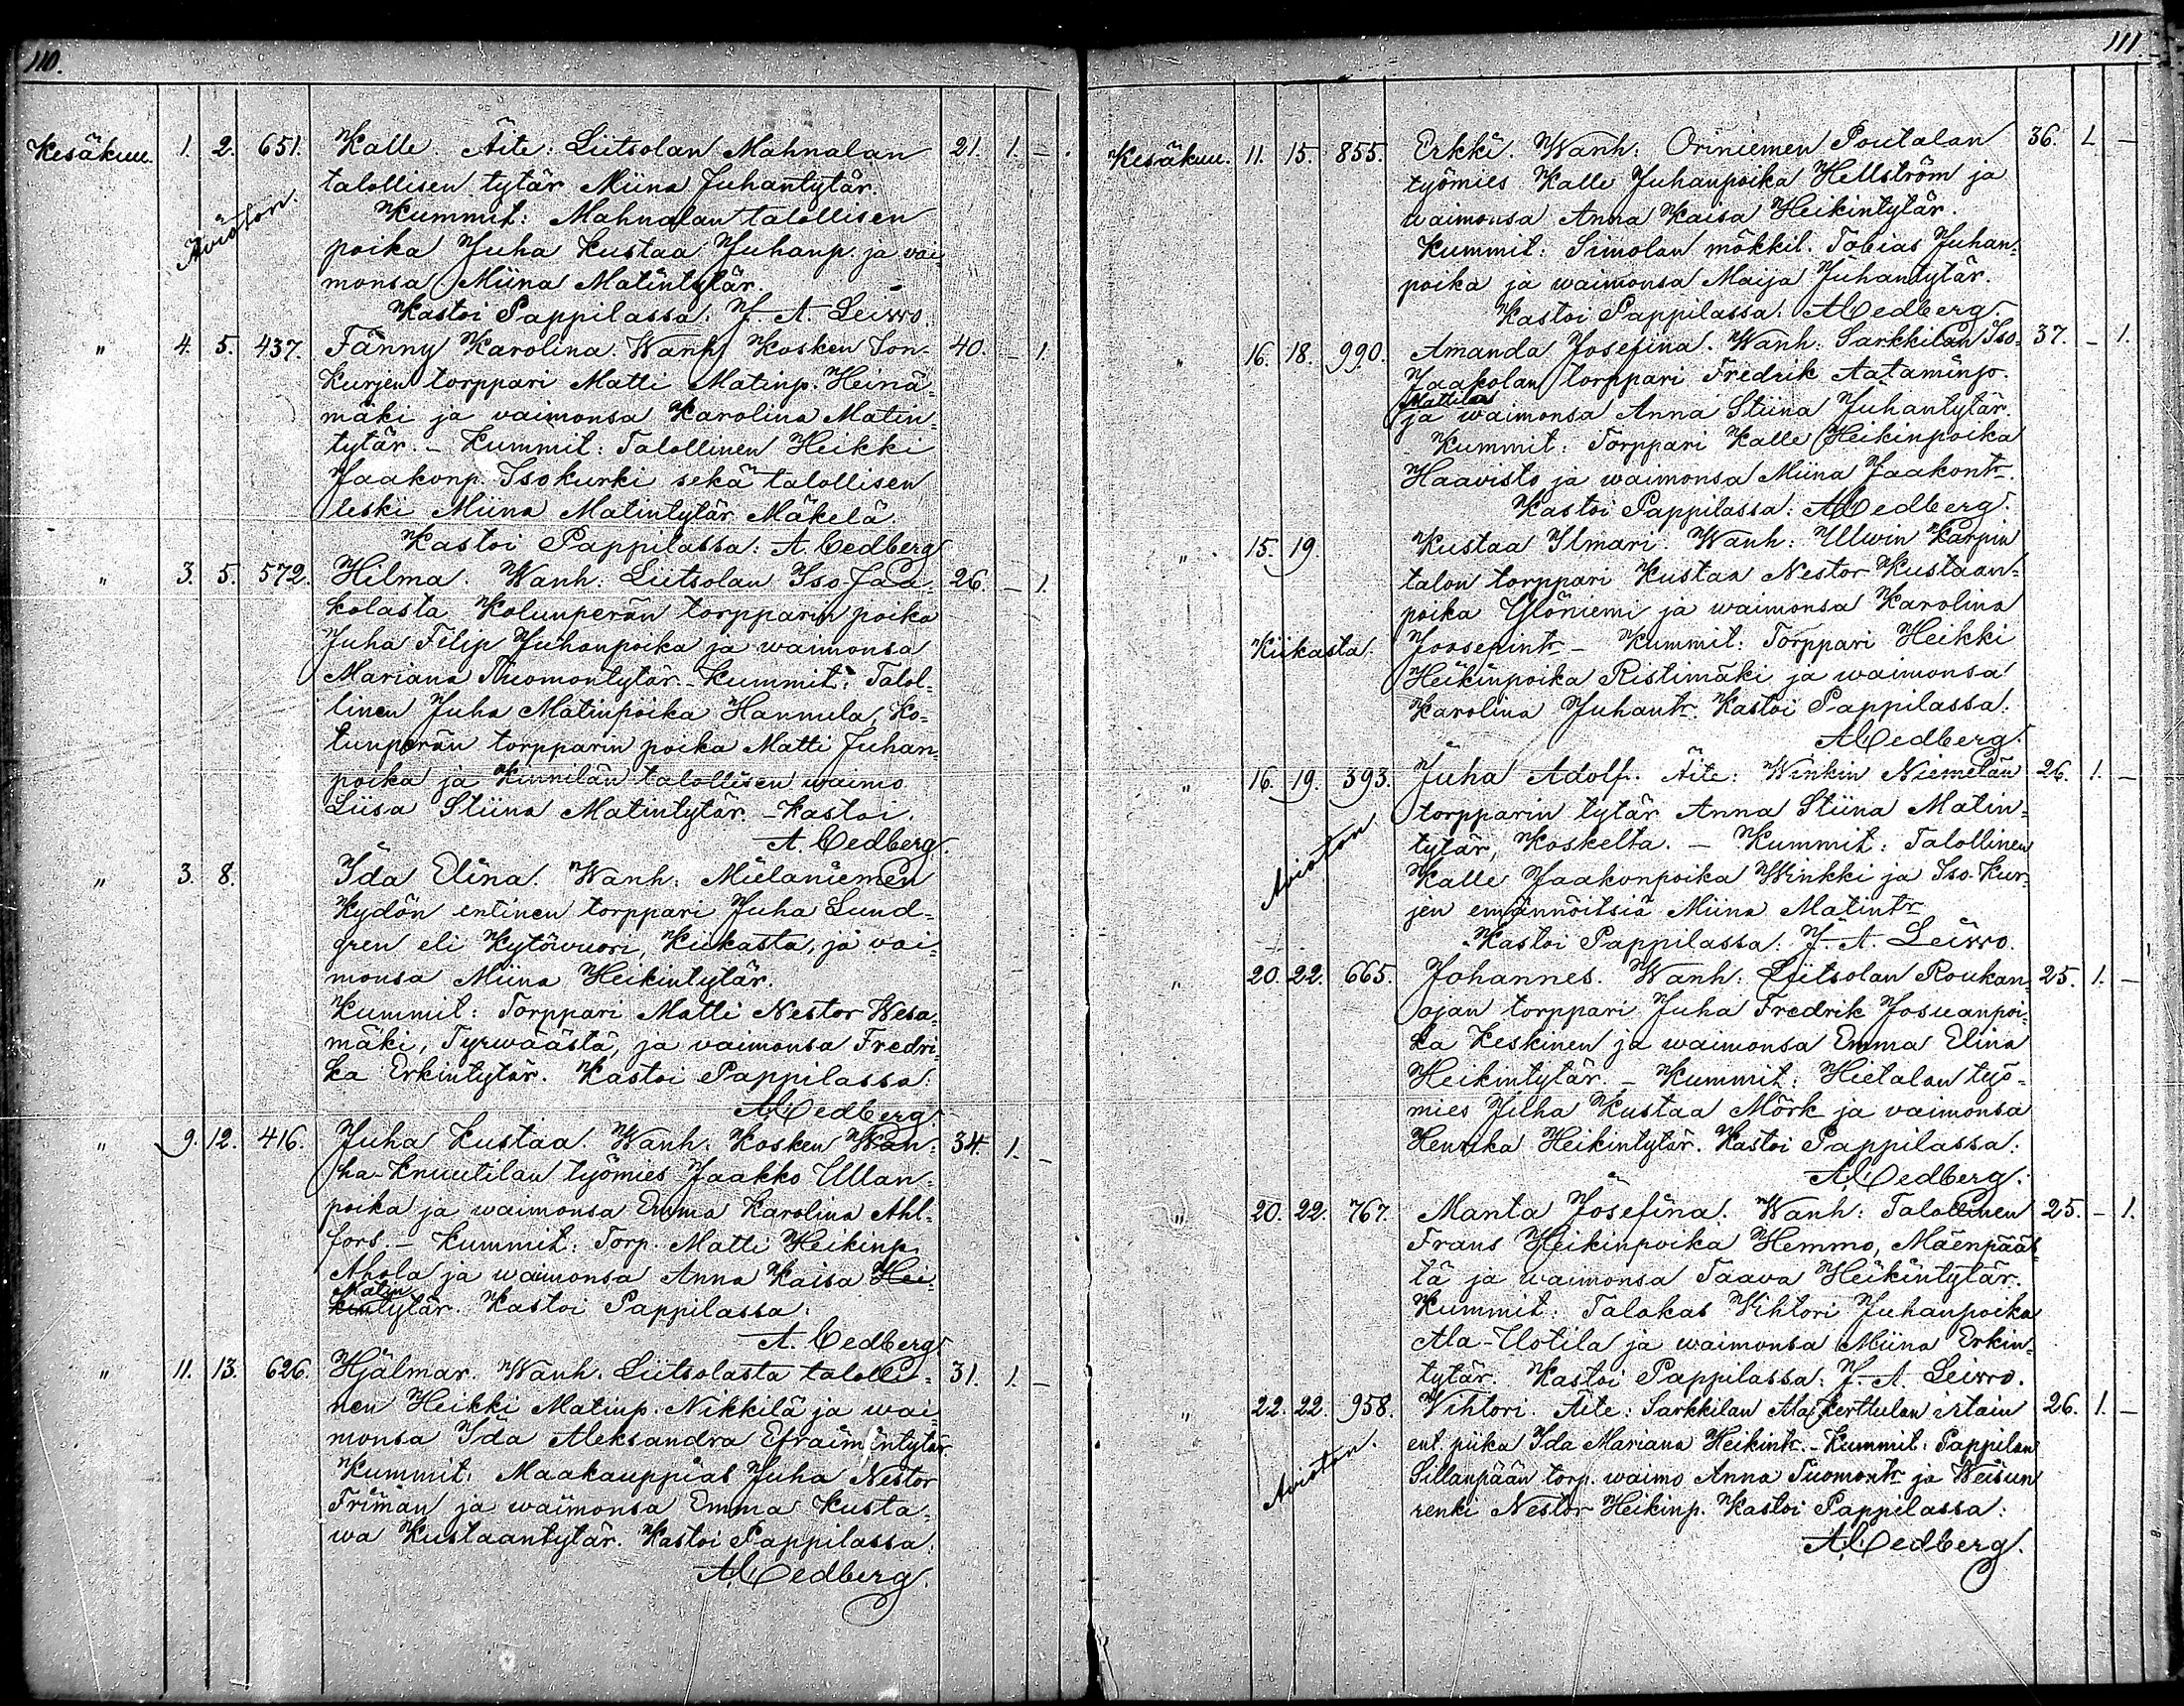 110.
Kesäkuu. 1. 2. 651. Kalle. Äite: Liitsolan Mahnalan 21. 1. –
talollisen tytär Miina Juhantytär.
Avioton. Kummit: Mahnalan talollisen
poika Juha Kustaa Juhanp. ja vai-
monsa Miina Matintytär.
Kastoi Pappilassa: J. A. Leivvo.
" 4. 5. 437. Fanny Karolina. Wanh. Kosken Ison- 40. – 1.
Kurjen torppari Matti Matinp. Heinä-
mäki ja vaimonsa Karolina Matin-
tytär. – Kummit: Talollinen Heikki
Jaakonp. Isokurki sekä talollisen
leski Miina Matintytär Mäkelä
Kastoi Pappilassa: A. Cedberg
" 3. 5. 572. Hilma. Wanh: Liitsolan Iso-Jaa- 26. – 1.
kolasta Kolunperän torpparin poika
Juha Filip Juhanpoika ja waimonsa
Mariana Tuomontytär. – Kummit: Talol-
linen Juha Matinpoika Hannula, Ko-
lunperän torpparin poika Matti Juhan-
poika ja Kinnilän talollisen waimo
Liisa Stiina Matintytär. – Kastoi.
A. Cedberg.
" 3. 8. Ida Elina. Wanh: Mielaniemen
Kydön entinen torppari Juha Lund-
gren eli Kytövuori, Kiikasta, ja vai-
monsa Miina Heikintytär.
Kummit: Torppari Matti Nestor Wesa-
mäki, Tyrwäästä, ja vaimonsa Fredri-
ka Erkintytär. Kastoi Pappilassa:
A. Cedberg.
" 9. 12. 416. Juha Kustaa. Wanh. Kosken Wan- 34. 1. –
ha-Knuutilan työmies Jaakko Ullan-
poika ja waimonsa Emma Karolina Ahl-
fors. – Kummit: Torp. Matti Heikinp.
Ahola ja waimonsa Anna Kaisa Hei-
Matin
kintytär. Kastoi Pappilassa:
A. Cedberg
" 11. 13. 626. Hjalmar. Wanh. Liitsolasta talolli- 31. 1. –
nen Heikki Matinp. Nikkilä ja wai-
monsa Ida Aleksandra Efraimintytär.
Kummit: Maakauppias Juha Nestor
Friman ja waimonsa Emma Kusta-
wa Kustaantytär. Kastoi Pappilassa:
A. Cedberg.
111
Kesäkuu. 11. 15. 855. Erkki. Wanh: Oriniemen Poutalan 36. 1. –
työmies Kalle Juhanpoika Hellström ja
waimonsa Anna Kaisa Heikintytär.
Kummit: Simolan mökkil. Tobias Juhan-
poika ja waimonsa Maija Juhantytär.
Kastoi Pappilassa: A Cedberg.
" 16. 18. 990. Amanda Josefina. Wanh: Sarkkilan Iso- 37. – 1.
Jaakolan torppari Fredrik Aataminp.
Mattila
ja waimonsa Anna Stiina Juhantytär.
Kummit: Torppari Kalle Heikinpoika
Haavisto ja waimonsa Miina Jaakontr.
Kastoi Pappilassa: A Cedberg.
" 15. 19. Kustaa Ilmari. Wanh: Ullwin Karpin
talon torppari Kustaa Nestor Kustaan-
poika Ylöniemi ja waimonsa Karolina
Kiikasta. Joosepintr. – Kummit: Torppari Heikki
Heikinpoika Ristimäki ja waimonsa
Karolina Juhantr. Kastoi Pappilassa:
A Cedberg.
" 16. 19. 393. Juha Adolf. Äite: Winkin Niemelän 26. 1. –
torpparin tytär Anna Stiina Matin-
Avioton tytär, Koskelta. – Kummit: Talollinen
Kalle Jaakonpoika Winkki ja Iso-Kur-
jen emännöitsiä Miina Matintr
Kastoi Pappilassa: J. A. Leivvo.
" 20. 22. 665. Johannes. Wanh: Liitsolan Roukan- 25. 1. –
ojan torppari Juha Fredrik Josuanpoi-
ka Keskinen ja waimonsa Emma Elina
Heikintytär. – Kummit: Hietalan työ-
mies Juha Kustaa Mörk ja vaimonsa
Henrika Heikintytär. Kastoi Pappilassa:
A. Cedberg.
" 20. 22. 767. Manta Josefina. Wanh: Talollinen 25. – 1.
Frans Heikinpoika Hemmo, Mäenpääs-
tä ja waimonsa Taava Heikintytär.
Kummit: Talokas Vihtori Juhanpoika
Ala-Uotila ja waimonsa Miina Erkin-
tytär. Kastoi Pappilassa: J. A. Leivvo.
" 22. 22. 958. Vihtori. Äite: Sarkkilan Ala-Kerttulan irtain 26. 1. –
Avioton. ent. piika Ida Mariana Heikintr. – Kummit: Pappilan
Sillanpään torp. waimo Anna Tuomontr. ja Weisun
renki Nestor Heikinp. Kastoi Pappilassa:
A. Cedberg.